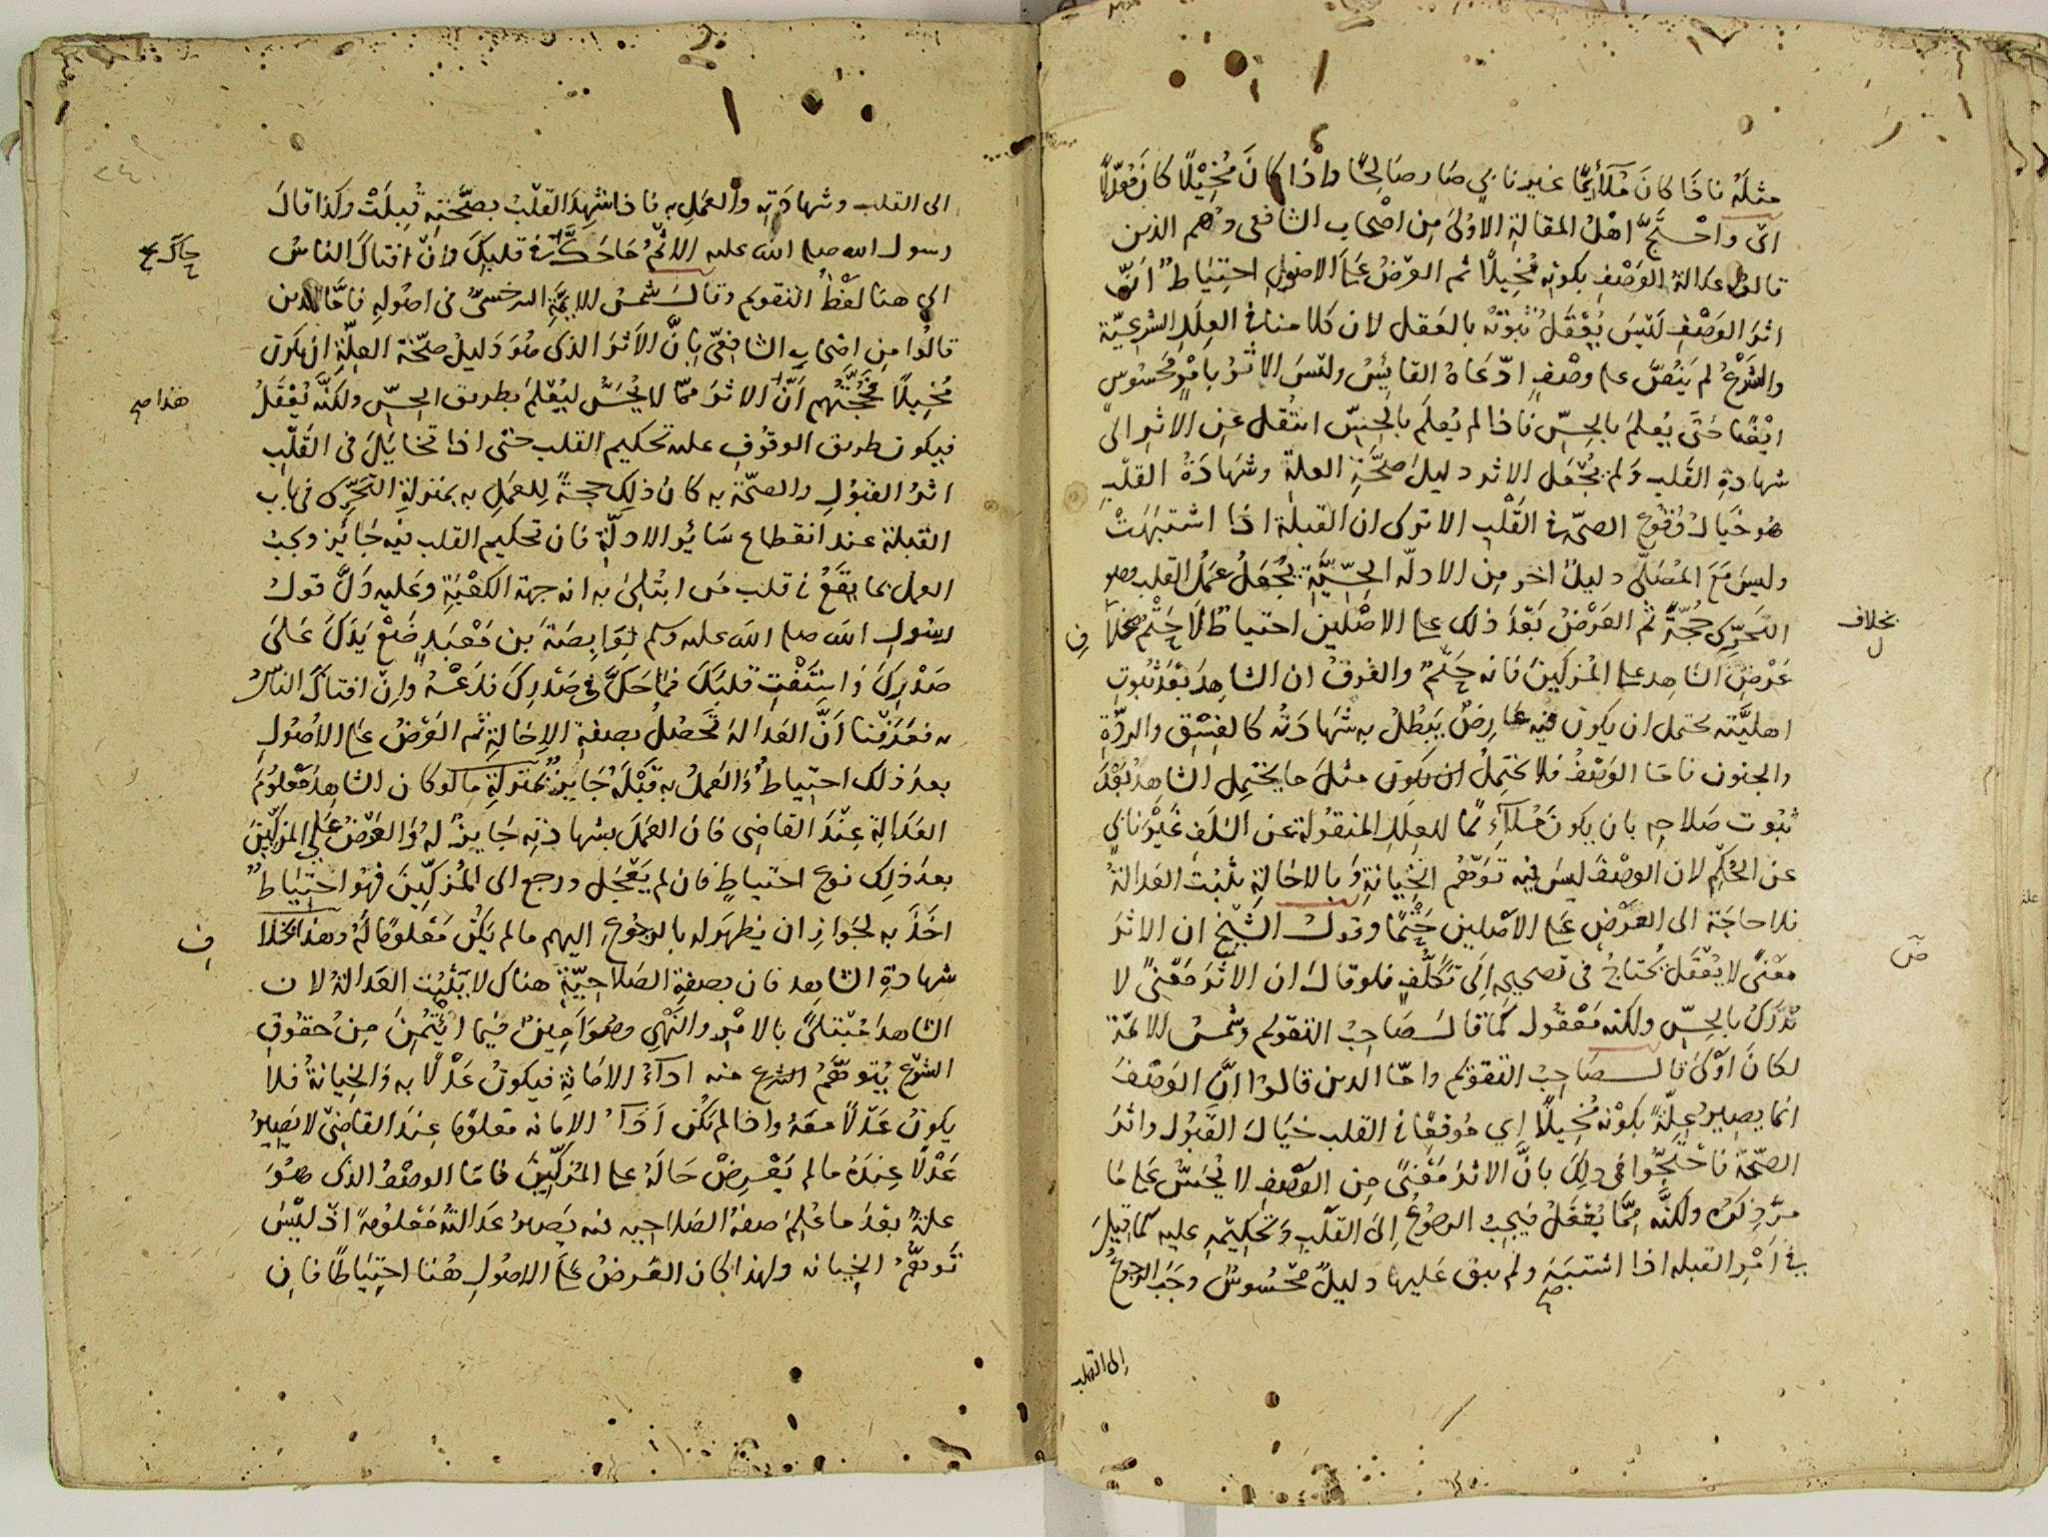 مثله فاذا كان ملائمًا غير نابي صار صالحًا واذا كان مُخِيْلًا كان معدّلًا
اى واحْتَجَّ اهلُ المقالةِ الاوْلىَ مِن اصْحاب الشافعى وهم الذين
قالوا عدالة الوَصْفِ بكونه مُخِيلًا ثم العرْضُ على الاصولِ احتِيَاطٌ انّ
اثرَ الوَصْفِ لَيْسَ يُعْقَلُ ثبوتُه بالعقل لان كلامنا فى العِلَلِ الشرعيّة
والشَّرْعُ لم يَنُصَّ على وصْفٍ ادّعَاهُ القائِسُ وليْسَ الاثرُ بامْرٍ مَحْسُوسٍ
ايْضًا حَتّى يُعلمَ بالحِسِّ فاذا لم يُعلَم بالحِسِّ انتُقل عن الاثرِ الى
شهادةِ القَلبِ وَلم يُجْعَل الاثر دليلَ صحّةِ العلة وشهَادَةُ القلبِ
هو خَيالُ وُقوْعِ الصحّةِ فى القَلْبِ الا ترى ان القبلة اذا اشتبَهَتْ
وليسَ مَعَ المُصَلّى دليلٌ اخر مِن الادلّه الحِسِّيَّةِ يُجْعَلُ عَمَلُ القلب وهو
التحَرِّى حُجَّةً ثم العَرْضُ بَعْدَ ذلك على الاصْلَين احتياطٌ لَا حَتْمٌ بخلاف
عَرْضِ الشاهِد على المُزكِّينَ فانه حَتْمٌ والفرقُ ان الشاهِدَ بَعْدَ ثبُوتِ
اهليَّته يحتمل ان يكون فيه عَارِضٌ يَبْطُلُ به شهَادَتُه كالفِسْقِ والرِدّةِ
والجنون فامّا الوَصْفُ فلا يحْتمِلُ ان يكون مثلَ ما يحتمِل الشاهدُ بَعْدَ
ثبوت صَلاحِه بان يكونَ مُلَائِمًا للعِلَلِ المنقولةِ عن السَلَفِ غَيْرَ نابٍى
عن الحُكم لان الوصْفَ ليسَ فيه تَوهّم الخِيانةِ وَبالاخالةِ يثبتُ العَدالةُ
فلا حاجَة الى العَرْضِ على الاصْلين حَتْمًا وقول الشّيْخ ان الاثرَ
مَعْنىً لا يُعْقَلُ يُحتاجُ فى تصحيحِه اِلَى تكَلُّفٍ فلو قال ان الاثَرَ مَعْنىً لا
يُدْرَكُ بالحِسِّ ولكنه مَعْقول كَما قال صَاحِبُ التقويم وشمسُ الائمّة
لكان اَوْلىَ قال صَاحِبُ التقويم وامّا الذين قالوْا انَّ الوَصْفَ
انما يصيرُ عِلّةً بكوْنِه مُخِيلًا اى مُوقِعًا فى القلب خيَالَ القَبُول واثرَ
الصّحّة فاحْتَجّوا فى ذلِكَ بانَّ الاثرَ مَعْنىً مِن الوَصْفِ لا يُحَسُّ عَلى مَا
مَرَّ ذِكرُه ولكنّه مِمَّا يُعْقَلُ فيَجِبُ الرجُوعُ اِلَى القَلْبِ وَتحكِيْمِه عليه كمَا قِيلَ
فى اَمْرِ القبله اذا اشتبَهَ ولم يبق عَليها دليلٌ مَحْسُوسٌ وجَبَ الرجوعُ
الى القلب
بخلاف
ف
ص
الى القلب وشهادَتِه والعمَلِ به فاذا شَهِدَ القَلْبُ بصحّتِه قُبِلَتْ وكذا قالَ
رسول الله صلى الله عليه الاثمُ مَا حَكَّ فى قلبِكَ وَانْ افتاكَ الناسُ
الى هنا لفْظُ التقويم وقال شمسُ الايمّةِ السرخسىُّ فى اصُولِه فامَّا الذين
قالُوا مِن اصْحابِ الشافِعىّ بانَّ الاَثرَ الذى هُوَ دَليلُ صحّةِ العِلّةِ ان يكون
مُخِيلًا فحُجَّتُهم اَنَّ الاثرَ ممّا لا يُحَسُّ ليُعْلَمَ بطريق الحِسِّ ولكنّه يُعْقَلُ
فيكون طريق الوقُوفِ عليه تحكيم القلب حتى اذا تخايَلَ فى القَلْبِ
اثرُ القَبُولِ والصحّة به كان ذلِك حجّةً لِلعمَلِ به بمنزلةِ التحَرِّى فى باب
القبلة عند انقطاع سَائرِ الادلّةِ فان تحكيم القلب فيْه جَائز ويجبُ
العملُ بما يقَعُ فى قلب مَن ابتُلِىَ به انه جهة الكَعْبَةِ وعَليه دَلَّ قولُ
رسُولِ الله صلى الله عليه وسلم لِوَابِصَة بن مَعْبَدٍ ضَعْ يَدَكَ عَلىَ
صَدْرِكَ وَاسْتَفْتِ قلبَكَ فمَا حَكَّ فى صَدْرِكَ فدَعْهُ وَاِنْ افتاكَ الناسُ
به فعَرَفْنا اَنَّ العَدالة تَحْصُلُ بصفةِ الاِخالةِ ثم العَرْضُ على الاُصُولِ
بعدَ ذلك احتِياطٌ وَالعَمَلُ به قَبْلَهُ جَايزٌ بمنزلةِ ما لو كان الشاهِدُ مَعْلُومَ
العَدالةِ عِنْدَ القاضِى فان العمَلَ بشهادتِه جَايزٌ لهُ وَالعَرْضُ عَلى المزكّينَ
بعدَ ذلِك نوع احتياطٍ فان لم يَعْجَل ورجع الى المُزكِّينَ فهُو احْتِيَاطٌ
اخَذَ به لجَوازِ ان يظهَر له بالرجُوعِ اليهم ما لم يَكُنْ مَعْلومًا لهُ وهذا بخلاف
شهادةِ الشاهد فان بصفةِ الصَلاحِيّةِ هناك لا يَثبُت العَدالةُ لان
الشاهدَ مُبْتلىً بالامْرِ والنَهْىِ وهُوَ امِينٌ فيما ائتُمِنَ مِنْ حُقوقِ
الشرْع يُتوهَّمُ الشرع منه اداءُ الامَانةِ فيكونُ عَدْلًا به وَالخِيانةُ فلا
يكونُ عَدْلًا معَهُ واذا لم يَكُن اَدَاءُ الامانه مَعْلومًا عِندَ القاضِىْ لا يَصِيرُ
عَدْلًا عِندَهُ ما لم يَعْرِضْ حَالَهُ على المُزكِّيْنَ فامّا الوصْفُ الذى هُوَ
علةٌ بعْدَ ما عُلِمَ صفةُ الصَلاحِيه فيه يَصِيرُ عَدالتُهُ مَعْلومةً اذْ ليْسَ
تَوهُّمُ الخِيانه ولهذا كان العَرضُ على الاصُولِ هُنا احتِيَاطًا فان
حاكَ
هذا صح
ف